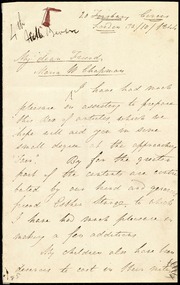 20 Finsbury Circus
London 20/10/1844
4th
My Dear Friend,
Maria W Chapman
I have had much
pleasure in assisting to prepare
this Box of articles, which we
hope will aid you in some
small degree at the approaching
Fair. By far the greater
part of the contents are contri-
buted by our kind and generous
friend Esther Sturge, to which
I have had much pleasure in
making a few additions.
My children also have been
desirous to cast in their mite